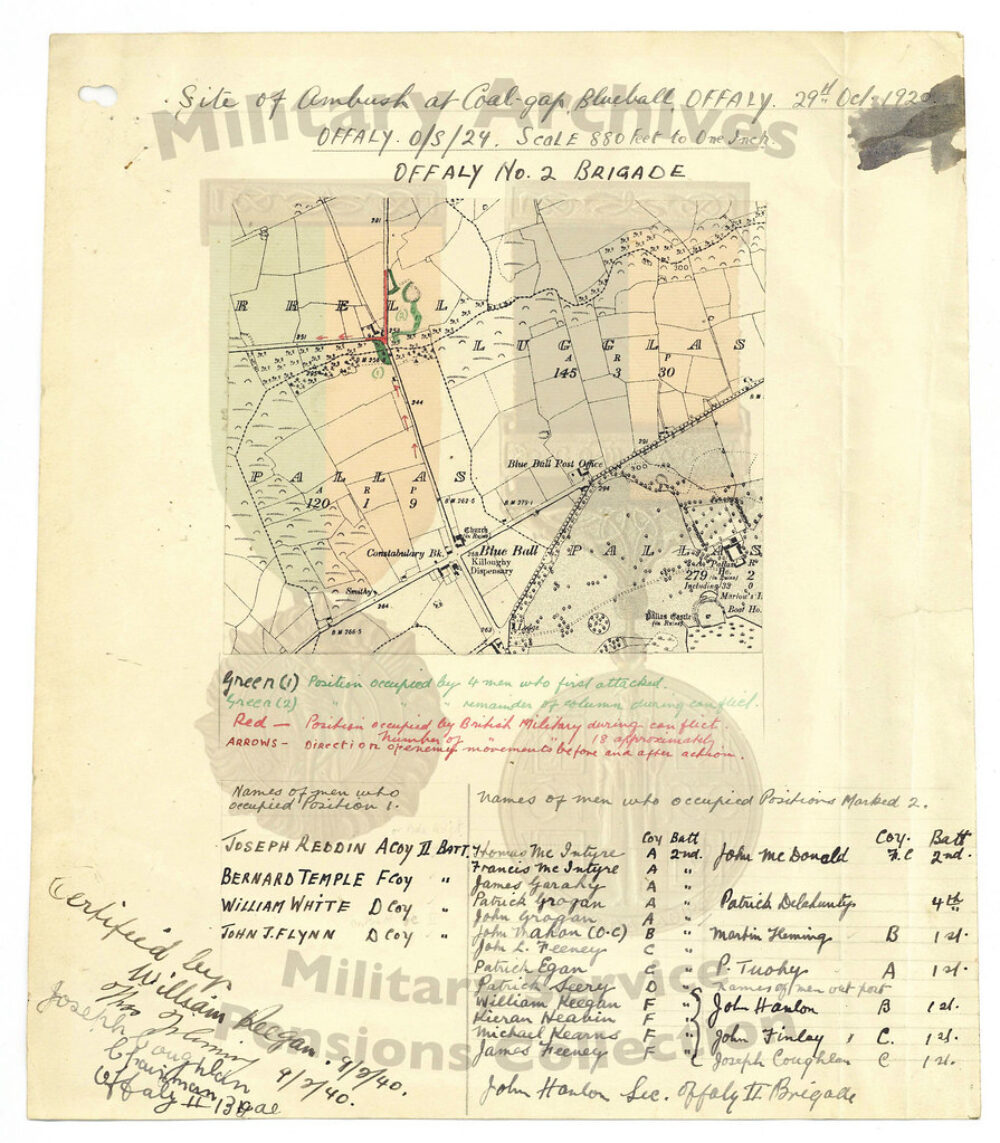 Military Archives
Site of Ambush at Coal-gap, Blueball, OFFALY. 29th Oct. 1920.
OFFALY. O/S/24. SCALE 880 feet to One Inch.
OFFALY No. 2 BRIGADE
281
300
R H E L L
251
252
BM 256
(2)
(1)
244
L U G G L A S
A R P
145 3 30
291
BM
P A L L A S
A R P
120 1 9
Blue Ball Post Office
300
294
BM 262·5
BM 279·1
Church
(in Ruins)
Constabulary Bk.
Blue Ball
Killoughy
Dispensary
P A L L A S
Ho.
(in Ruins)
279 2
Including 39 0
Boat Ho.
Pallas Castle
(in Ruins)
Smithy
264
BM 266·5
263
Lodge
Green (1) Position occupied by 4 men who first attacked.
Green (2) " " " remainder of column during conflict.
Red — Position occupied by British Military during conflict.
Number of " " 18 approximately
ARROWS - DIRECTION of enemy movements before and after action.
Names of men who
occupied Position 1.
JOSEPH REDDIN A COY II BATT.
BERNARD TEMPLE F COY "
WILLIAM WHITE D COY "
JOHN J. FLYNN D COY "
Names of men who occupied Positions Marked 2.
Coy Batt
Coy. Batt
Thomas Mc Intyre A 2nd. John McDonald F.C 2nd.
Francis Mc Intyre A "
James Garahy A "
Patrick Grogan A " Patrick Delahunty 4th
John Grogan A "
John Mahon (O.C) B " Martin Fleming B 1st.
John L. Feeney C "
Patrick Egan C " P. Tuohy A 1st.
Patrick Seery D " Names of men out post
William Keegan F " John Hanlon B 1st.
Kieran Heavin F "
Michael Kearns F " John Finlay C. 1st.
James Feeney F " Joseph Coughlan C 1st.
John Hanlon Sec. Offaly II Brigade
Certified by
William Keegan. 9/2/40.
Fleming
Joseph Coughlan 9/2/40.
Chairman
Offaly II Bgde
Military Service
Pensions Collection